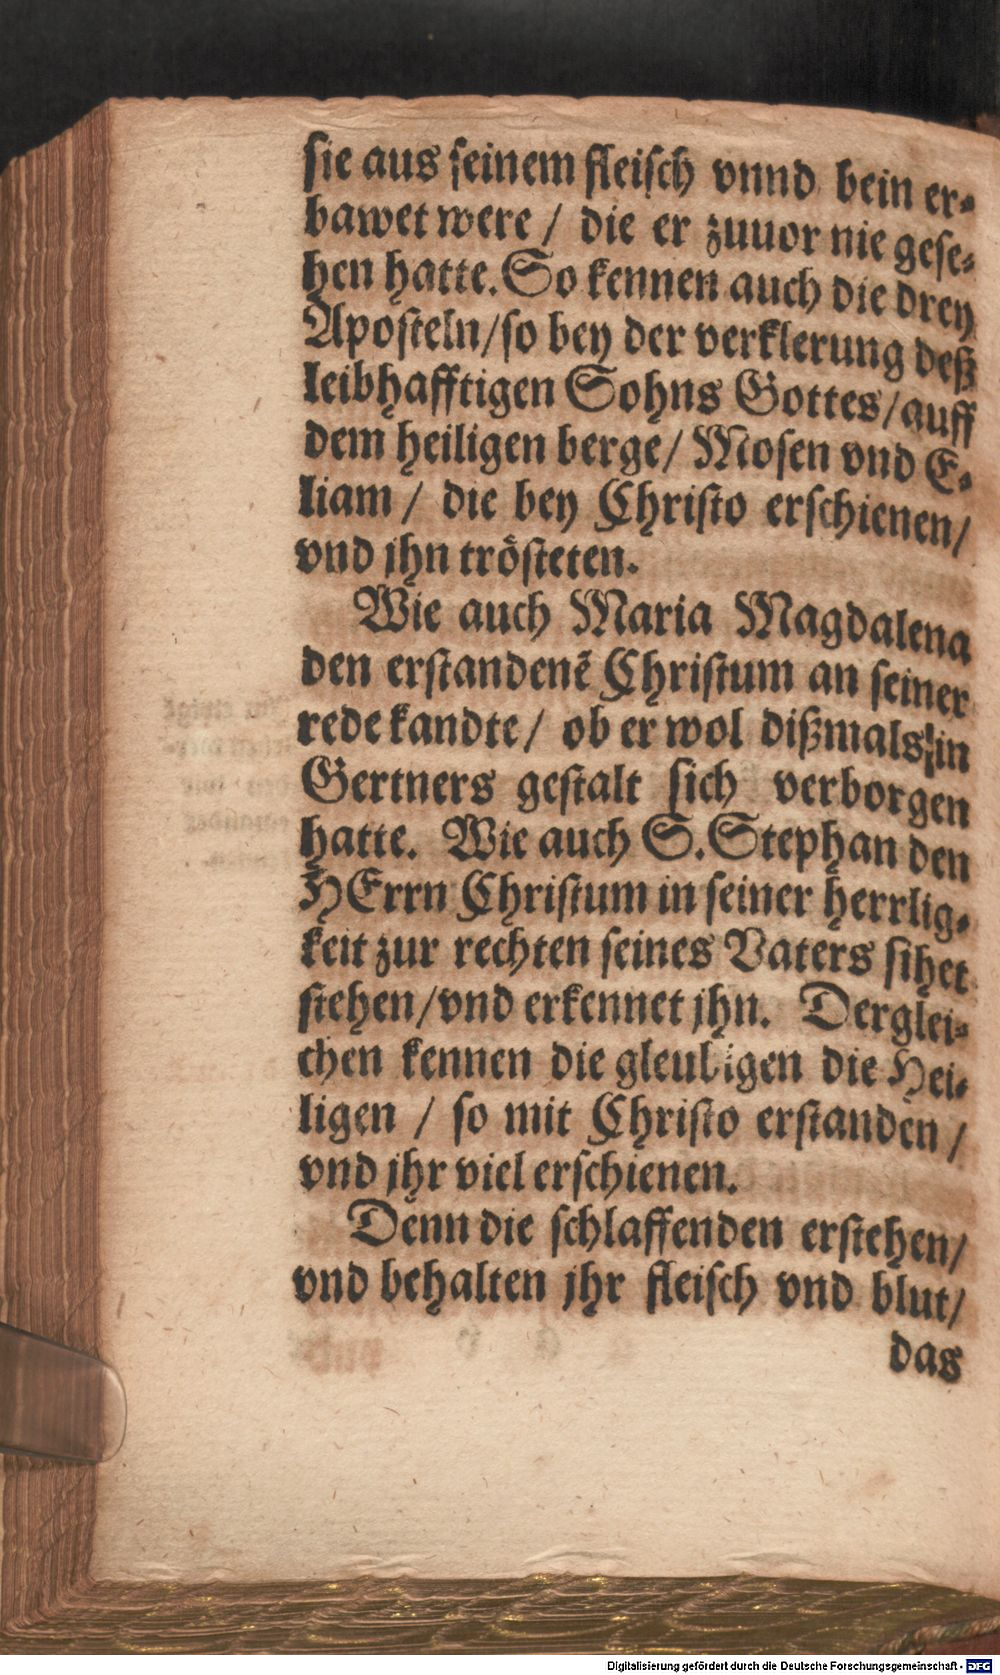 sie aus seinem fleisch vnnd bein er⸗
bawet were / die er zuuor nie gese⸗
hen hatte. So kennen auch die drey
Aposteln/so bey der verklerung deß
leibhafftigen Sohns Gottes/auff
dem heiligen berge/ Mosen vnd E⸗
liam / die bey Christo erschienen/
vnd jhn trösteten.
Wie auch Maria Magdalena
den erstandenẽ Christum an seiner
rede kandte/ ob er wol dißmals in
Gertners gestalt sich verborgen
hatte. Wie auch S. Stephan den
HErrn Christum in seiner herrlig⸗
keit zur rechten seines Vaters sihet
stehen/vnd erkennet jhn. Derglei⸗
chen kennen die gleubigen die Hei⸗
ligen / so mit Christo erstanden /
vnd jhr viel erschienen.
Denn die schlaffenden erstehen/
vnd behalten jhr fleisch vnd blut/
das
Digitalisierung gefördert durch die Deutsche Forschungsgemeinschaft - DFG